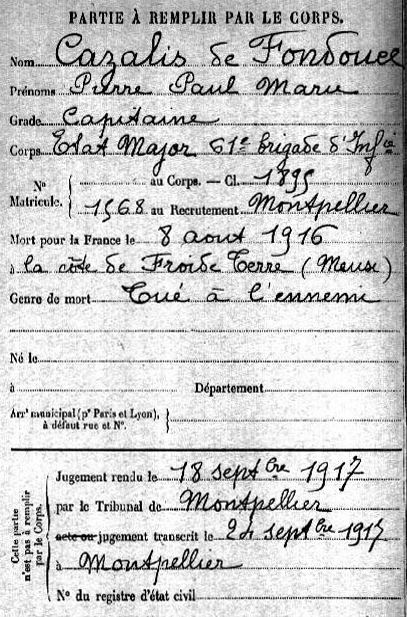 PARTIE À REMPLIR PAR LE CORPS.
Nom Cazalis de Fondouce
Prénoms Pierre Paul Marie
Grade Capitaine
Corps Etat Major 61e brigade d'Infie
Nº Matricule. { au Corps. — Cl. 1899
1568 au Recrutement Montpellier
Mort pour la France le 8 aout 1916
à la côte de Froide Terre (Meuse)
Genre de mort Tué à l'ennemi
Né le
à Département
Arrt municipal (pr Paris et Lyon), à défaut rue et Nº.
Cette partie n'est pas à remplir par le Corps.
Jugement rendu le 18 septbre 1917
par le Tribunal de Montpellier
acte ou jugement transcrit le 24 septbre 1917
à Montpellier
Nº du registre d'état civil